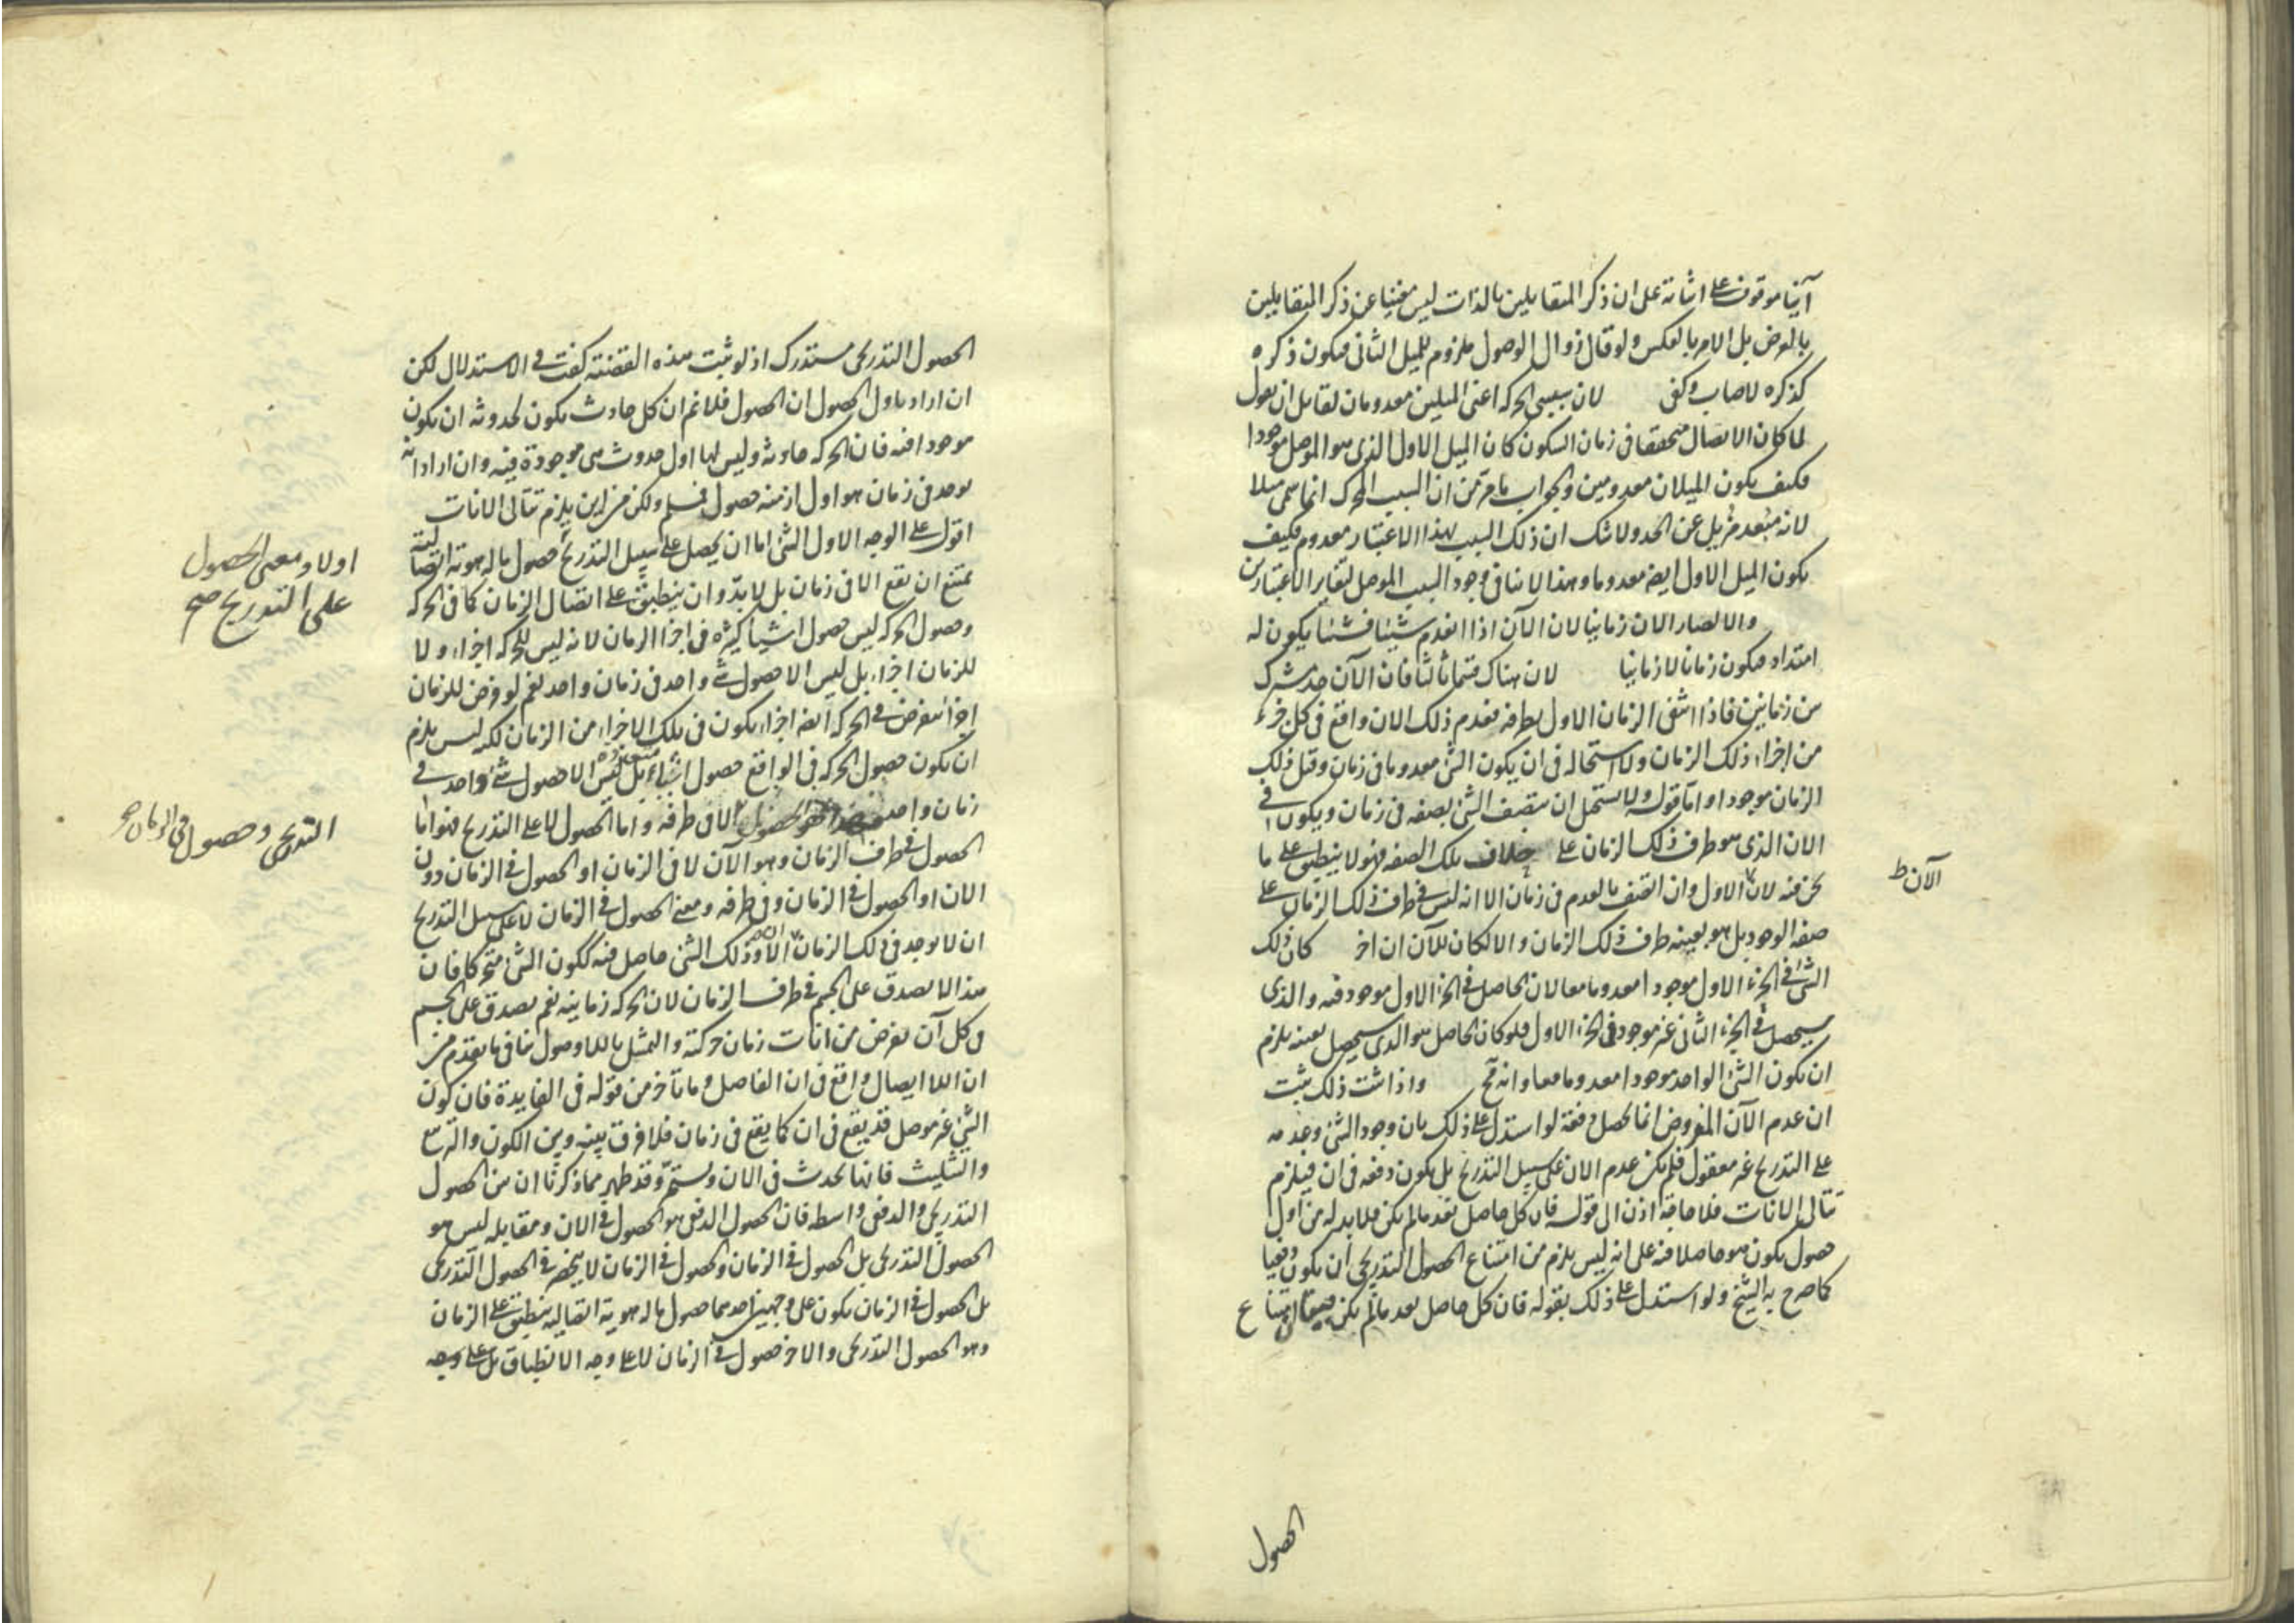 آنيا موقوف على اثباته على ان ذكر المتقابلين بالذات ليس مغنيا عن ذكر المتقابلين
بالعرض بل الامر بالعكس ولو قال زوال الوصول ملزوم للميل الثانى فيكون ذكره
كذكره لاصاب وكفى لان سببى الحركه اعنى الميلين معدومان لقائل ان يقول
لما كان الاتصال متحققا فى زمان السكون كان الميل الاول الذى هو الموصل موجودا
فكيف يكون الميلان معدومين والجواب ما مر من ان السبب المحرك انما سمى ميلا
لانه مبعد مزيل عن الحد ولا شك ان ذلك السبب بهذا الاعتبار معدوم فكيف
يكون الميل الاول ايضه معدوما وهذا لا ينافى وجود السبب الموصل لتغاير الاعتبارين
والا لصار الان زمانيا لان الآن اذا انعدم شيئا فشيئا يكون له
امتداد فيكون زمانا لا زمانيا لان هناك قسما ثالثا فان الآن حد مشترك
بين زمانين فاذا انتفى الزمان الاول بطرفه فعدم ذلك الان واقع فى كل جزء
من اجزاء ذلك الزمان ولا استحاله فى ان يكون الشئ معدوما فى زمان وقبل ذلك
الزمان موجودا واما قوله ولا يستحيل ان يتصف الشئ بصفه فى زمان ويكون فى
الان الذى هو طرف ذلك الزمان على خلاف تلك الصفه فهو لا ينطبق على ما
نحن فيه لان الاول وان اتصف بالعدم فى زمان الا انه ليس فى طرف ذلك الزمان على
الآن ط
صفه الوجود بل هو بعينه طرف ذلك الزمان والا لكان للآن ان اخر كان ذلك
الشئ فى الجزء الاول موجودا معدوما معا لان الحاصل فى الجزء الاول موجود فيه والذى
سيحصل فى الجزء الثانى غير موجود فى الجزء الاول فلو كان الحاصل هو الذى سيحصل بعينه يلزم
ان يكون الشئ الواحد موجودا معدوما معا وانه مح واذا ثبت ذلك ثبت
ان عدم الآن المفروض انما يحصل دفعة لو استدل على ذلك بان وجود الشئ وعدمه
على التدريج غير معقول فلم يكن عدم الان على سبيل التدريج بل يكون دفعه فى ان فيلزم
تتالى الانات فلا حاجة اذن الى قوله فان كل حاصل بعد ما لم يكن فلا بد له من اول
حصول يكون هو حاصلا فيه على انه ليس يلزم من امتناع الحصول التدريجى ان يكون دفعيا
كما صرح به الشيخ ولو استدل على ذلك بقوله فان كل حاصل بعد ما لم يكن امتناع
الحصول
الحصول التدريجى مستدرك اذ لو ثبت هذه القضية كفت فى الاستدلال لكن
ان اراد باول الحصول ان الحصول فلا نم ان كل حادث يكون لحدوثه ان يكون
موجودا فيه فان الحركه حادثه وليس لها اول حدوث هى موجودة فيه وان اراد انه
يوجد فى زمان هو اول ازمنه حصول فمسلم ولكن من اين يلزم تتالى الانات
اقول على الوجه الاول الشئ اما ان يحصل على سبيل التدريج حصول ما له هوية اتصالية
اولا ومعنى الحصول
على التدريج صح
يمتنع ان يقع الا فى زمان بل لا بد وان ينطبق على اتصال الزمان كما فى الحركه
وحصول الحركه ليس حصول اشياء كثيره فى اجزاء الزمان لانه ليس للحركه اجزاء ولا
للزمان اجزاء بل ليس الا حصول شئ واحد فى زمان واحد نعم لو فرض للزمان
اجزاء تنفرض فى الحركه ايضه اجزاء يكون فى تلك الاجزاء من الزمان لكن ليس يلزم
ان يكون حصول الحركه فى الواقع حصول اشياء متعدده بل ليس الا حصول شئ واحد فى
زمان واحد الا فى طرفه واما الحصول لا على التدريج فهو اما
التدريجى وحصول فى الزمان صح
الحصول فى طرف الزمان وهو الآن لا فى الزمان او الحصول فى الزمان دون
الان او الحصول فى الزمان وفى طرفه ومعنى الحصول فى الزمان لا على سبيل التدريج
ان لا يوجد فى ذلك الزمان ان الا وذلك الشئ حاصل فيه ككون الشئ متحركا فان
هذا لا يصدق على الجسم فى طرف الزمان لان الحركه زمانيه نعم يصدق على الجسم
فى كل آن يفرض من انات زمان حركته والتمثيل باللاوصول ينافى ما تقدم من
ان اللاايصال واقع فى ان الفاصل وما تأخر من قوله فى الفايدة فان كون
الشئ غير موصل قد يقع فى ان كما يقع فى زمان فلا فرق بينه وبين الكون والتربيع
والتثليث فانها تحدث فى الان وتستمر وقد ظهر مما ذكرنا ان بين الحصول
التدريجى والدفعى واسطه فان الحصول الدفعى هو الحصول فى الان ومقابله ليس هو
الحصول التدريجى بل الحصول فى الزمان والحصول فى الزمان لا ينحصر فى الحصول التدريجى
بل الحصول فى الزمان يكون على وجهين احدهما حصول ما له هوية اتصاليه ينطبق على الزمان
وهو الحصول التدريجى والاخر حصول فى الزمان لا على وجه الانطباق بل على وجه